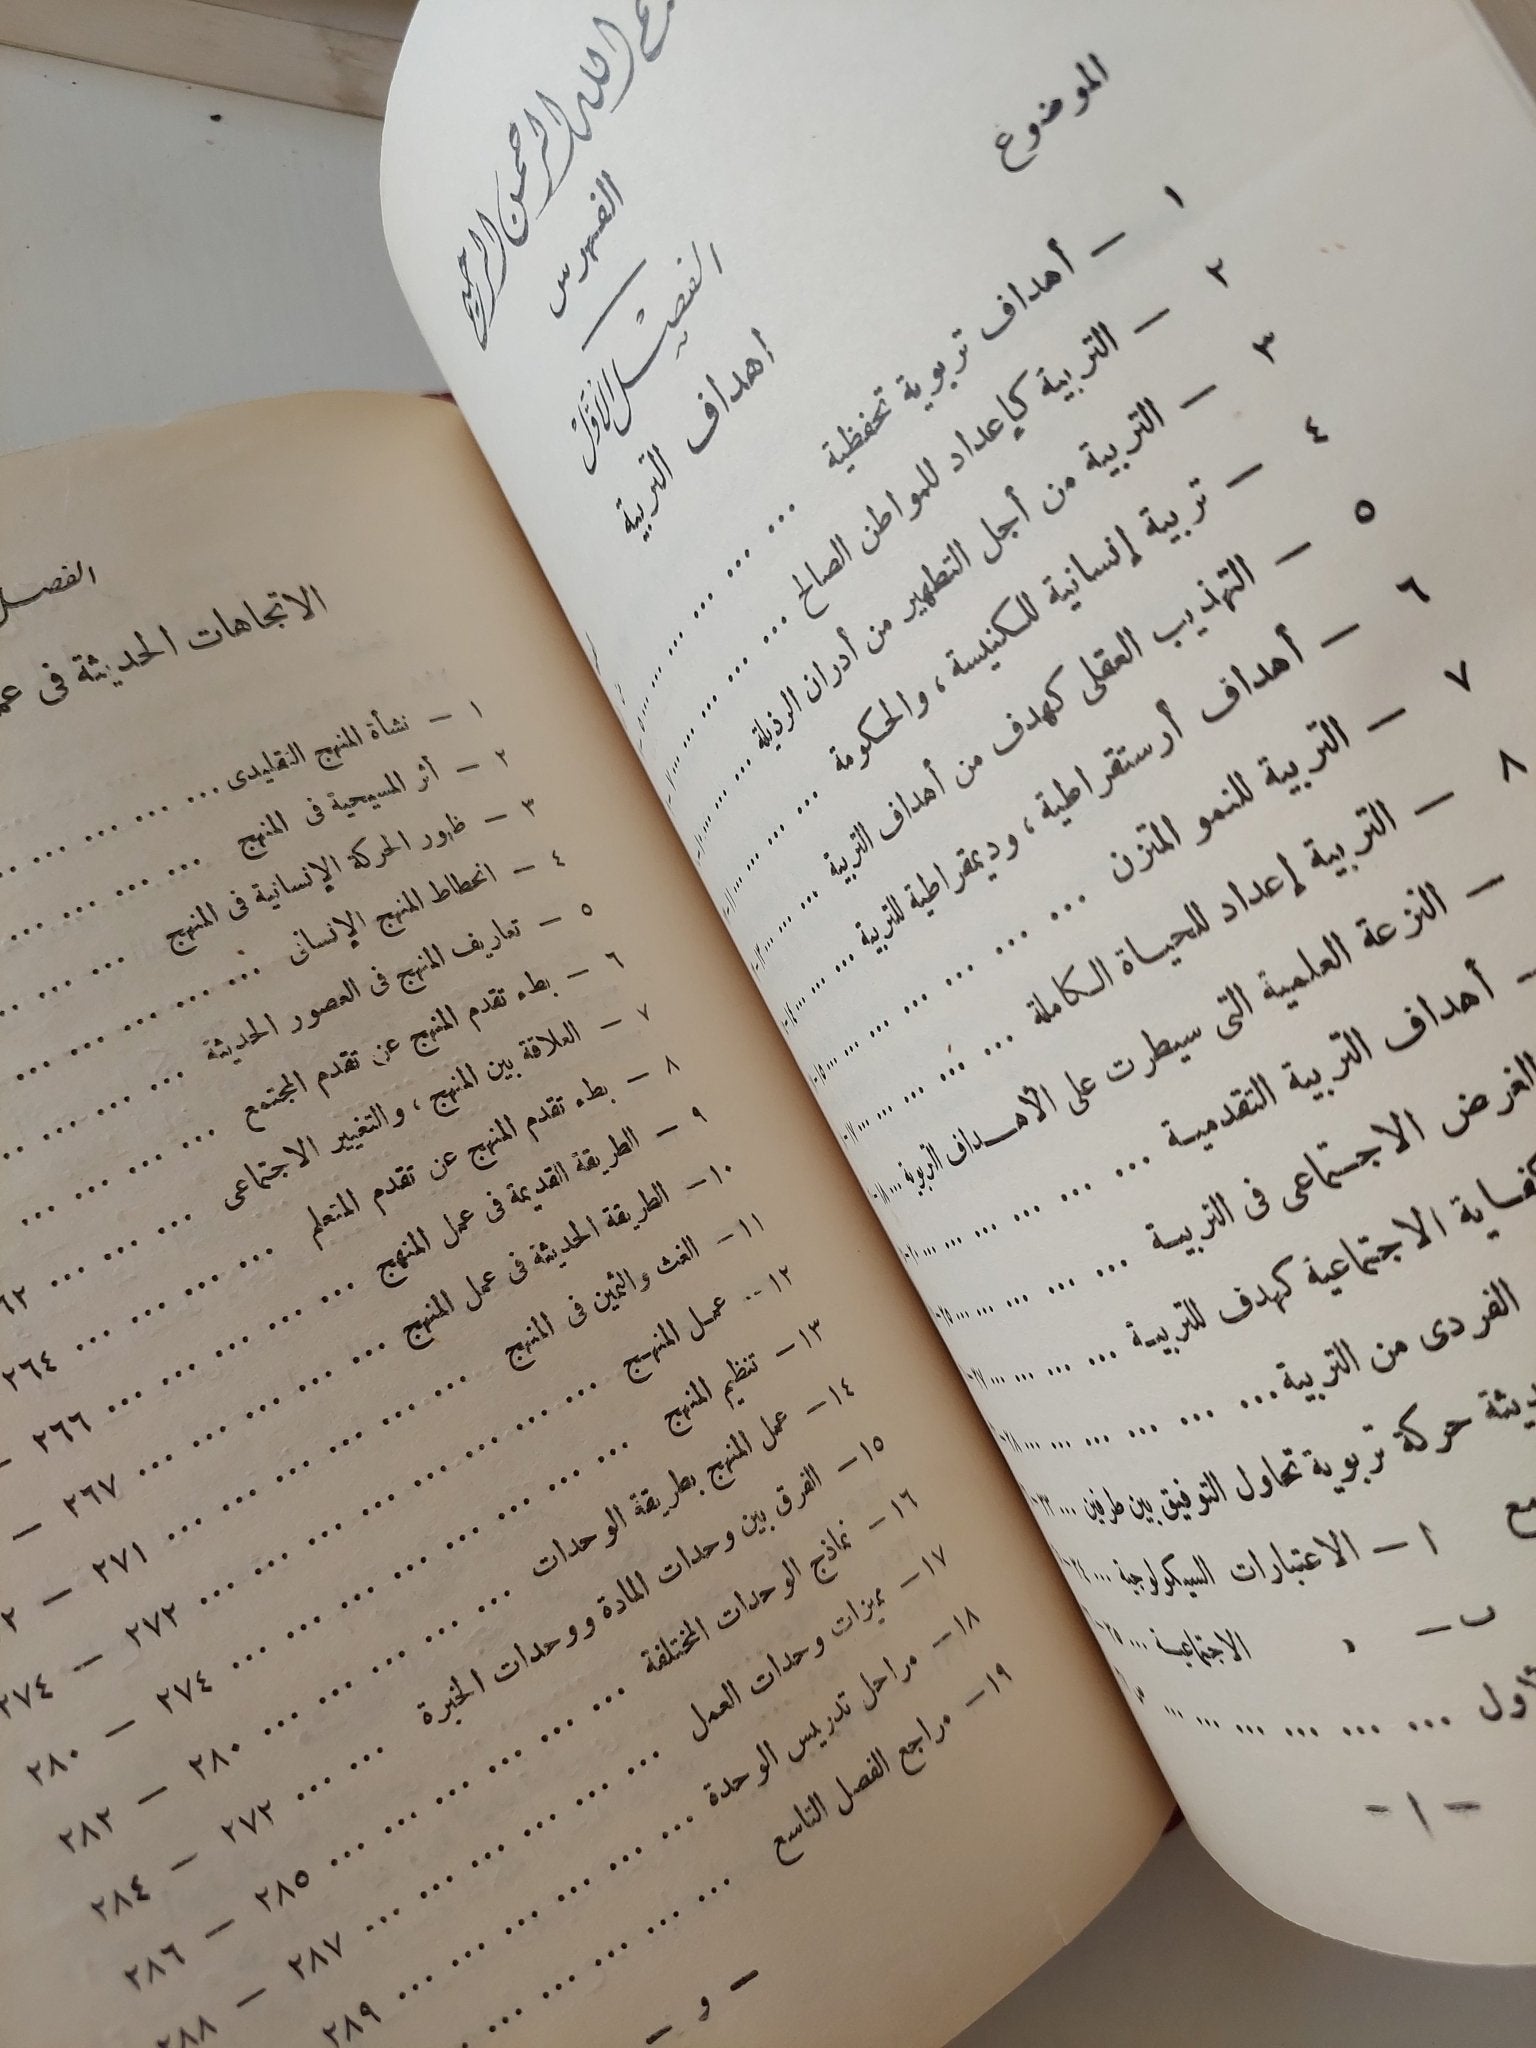 بسم الله الرحمن الرحيم
الفهرس
الموضوع
الفصل الأول
أهداف التربية
١ — أهداف تربوية تحفظية ... ... ... ... ... ...
٢ — التربية كإعداد للمواطن الصالح ... ... ... ... ...
٣ — التربية من أجل التطهير من أدران الرذيلة ... ... ...
٤ — تربية إنسانية للكنيسة ، والحكومة ... ... ...
٥ — التهذيب العقلى كهدف من أهداف التربية ... ...
٦ — أهداف أرستقراطية ، وديمقراطية للتربية ... ... ...
٧ — التربية للنمو المتزن ... ... ... ... ... ...
٨ — التربية إعداد للحياة الكاملة ... ... ... ... ...
— النزعة العلمية التى سيطرت على الأهداف التربوية ...
— أهداف التربية التقدمية ... ... ... ... ...
الغرض الاجتماعى فى التربية ... ... ... ... ...
الاجتماعية كهدف للتربية ... ... ... ...
الفردى من التربية ... ... ... ... ... ...
حركة تربوية تحاول التوفيق بين طرفين ...
ا — الاعتبارات السيكولوجية ...
ب — » الاجتماعية ...
... ... ... ... ... ...
— ١ —
الفصل
الاتجاهات الحديثة فى
١ — نشأة المنهج التقليدى ... ... ... ...
٢ — أثر المسيحية فى المنهج ... ... ... ...
٣ — ظهور الحركة الإنسانية فى المنهج ... ... ...
٤ — انحطاط المنهج الإنسانى ... ... ... ... ...
٥ — تعاريف المنهج فى العصور الحديثة ... ... ... ...
٦ — بطء تقدم المنهج عن تقدم المجتمع ... ... ... ...
٧ — العلاقة بين المنهج ، والتغيير الاجتماعى ... ... ...
٨ — بطء تقدم المنهج عن تقدم المتعلم ... ... ... ... ٢٦٤
٩ — الطريقة القديمة فى عمل المنهج ... ... ... ... ... ٢٦٦ —
١٠ — الطريقة الحديثة فى عمل المنهج ... ... ... ... ... ٢٦٧ —
١١ — الغث والثمين فى المنهج ... ... ... ... ... ... ٢٧١ —
١٢ — عمل المنهج ... ... ... ... ... ... ... ٢٧٢ — ٢٧٤
١٣ — تنظيم المنهج ... ... ... ... ... ... ... ٢٧٤ — ٢٨٠
١٤ — عمل المنهج بطريقة الوحدات ... ... ... ... ... ٢٨٠ — ٢٨٢
١٥ — الفرق بين وحدات المادة ووحدات الخبرة ... ... ٢٧٢ — ٢٨٤
١٦ — نماذج الوحدات المختلفة ... ... ... ... ... ٢٨٥ — ٢٨٦
١٧ — مميزات وحدات العمل ... ... ... ... ... ٢٨٧ — ٢٨٨
١٨ — مراحل تدريس الوحدة ... ... ... ... ... ٢٨٩
١٩ — مراجع الفصل التاسع ... ... ... ... ...
— و —